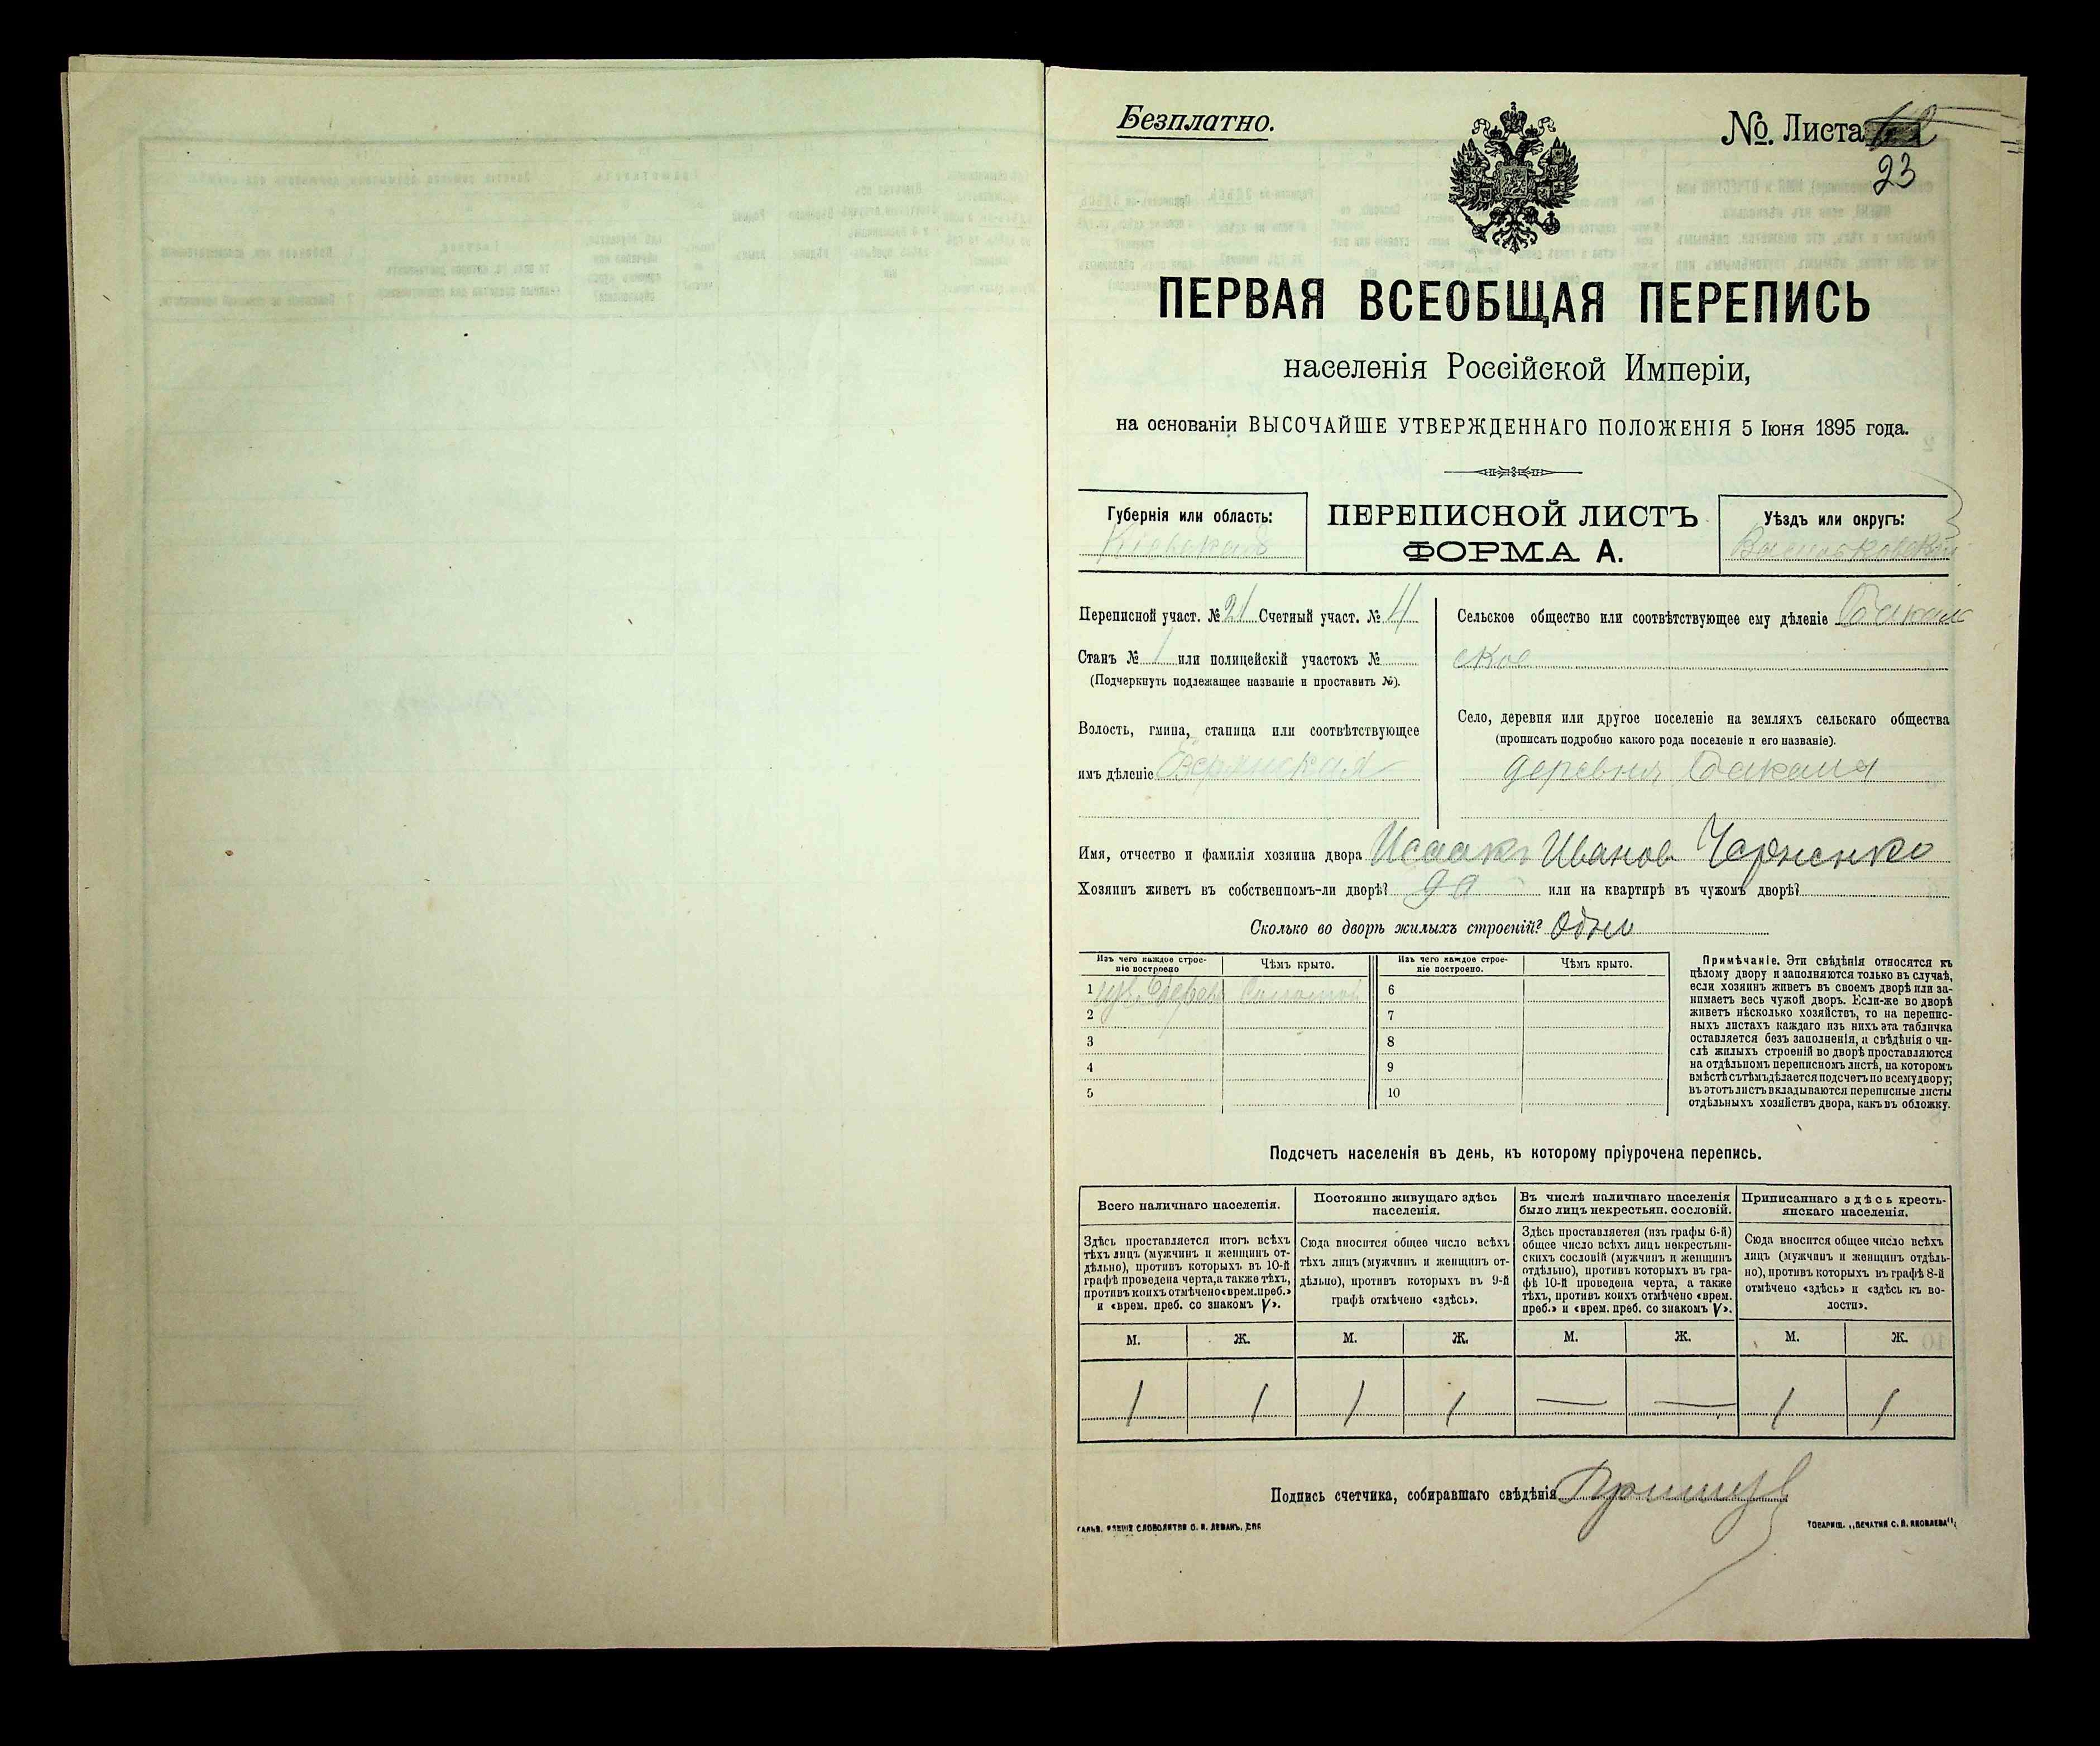 Безплатно.
№. Листа
23
ПЕРВАЯ ВСЕОБЩАЯ ПЕРЕПИСЬ
населенія Россійской Имперіи,
на основаніи ВЫСОЧАЙШЕ УТВЕРЖДЕННАГО ПОЛОЖЕНІЯ 5 Іюня 1895 года.
Губернія или область:
Кіевская
ПЕРЕПИСНОЙ ЛИСТЪ
ФОРМА А.
Уѣздъ или округъ:
Васильковскій
Переписной участ. № 21 Счетный участ. № 4
Станъ № 1 или полицейскій участокъ №
(Подчеркнуть подлежащее названіе и проставить №).
Волость, гмина, станица или соотвѣтствующее
имъ дѣленіе Езерянская
Сельское общество или соотвѣтствующее ему дѣленіе
ское
Село, деревня или другое поселеніе на земляхъ сельскаго общества
(прописать подробно какого рода поселеніе и его названіе).
деревня
Имя, отчество и фамилія хозяина двора Исаакъ Иванов Черненко
Хозяинъ живетъ въ собственномъ-ли дворѣ? да или на квартирѣ въ чужомъ дворѣ?
Сколько во дворѣ жилыхъ строеній?
Изъ чего каждое строе-
ніе построено
Чѣмъ крыто.
Изъ чего каждое строе-
ніе построено.
Чѣмъ крыто.
1
2
3
4
5
6
7
8
9
10
Примѣчаніе. Эти свѣдѣнія относятся къ
цѣлому двору и заполняются только въ случаѣ,
если хозяинъ живетъ въ своемъ дворѣ или за-
нимаетъ весь чужой дворъ. Если-же во дворѣ
живетъ нѣсколько хозяйствъ, то на перепис-
ныхъ листахъ каждаго изъ нихъ эта табличка
оставляется безъ заполненія, а свѣдѣнія о чи-
слѣ жилыхъ строеній во дворѣ проставляются
на отдѣльномъ переписномъ листѣ, на которомъ
вмѣстѣ съ тѣмъ дѣлается подсчетъ по всему двору;
въ этотъ листъ вкладываются переписные листы
отдѣльныхъ хозяйствъ двора, какъ въ обложку.
Подсчетъ населенія въ день, къ которому пріурочена перепись.
Всего наличнаго населенія.
Постоянно живущаго здѣсь
населенія.
Въ числѣ наличнаго населенія
было лицъ некрестьян. сословій.
Приписаннаго здѣсь кресть-
янскаго населенія.
Здѣсь проставляется итогъ всѣхъ
тѣхъ лицъ (мужчинъ и женщинъ от-
дѣльно), противъ которыхъ въ 10-й
графѣ проведена черта, а также тѣхъ,
противъ коихъ отмѣчено «врем. преб.»
и «врем. преб. со знакомъ V».
Сюда вносится общее число всѣхъ
тѣхъ лицъ (мужчинъ и женщинъ от-
дѣльно), противъ которыхъ въ 9-й
графѣ отмѣчено «здѣсь».
Здѣсь проставляется (изъ графы 6-й)
общее число всѣхъ лицъ некрестьян-
скихъ сословій (мужчинъ и женщинъ
отдѣльно), противъ которыхъ въ гра-
фѣ 10-й проведена черта, а также
тѣхъ, противъ коихъ отмѣчено «врем.
преб.» и «врем. преб. со знакомъ V».
Сюда вносится общее число всѣхъ
лицъ (мужчинъ и женщинъ отдѣль-
но), противъ которыхъ въ графѣ 8-й
отмѣчено «здѣсь» и «здѣсь къ во-
лости».
М. Ж. М. Ж. М. Ж. М. Ж.
1 1 1 1 — — 1 1
Подпись счетчика, собиравшаго свѣдѣнія
СЛОВОЛИТНИ О. И. ЛЕМАНЪ, СПБ
ТОВАРИЩ. „ПЕЧАТНЯ С. П. ЯКОВЛЕВА".